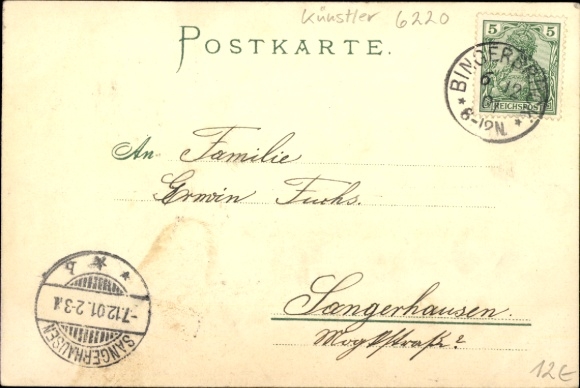 Künstler 6220
POSTKARTE.
5 5
REICHSPOST
BINGERBRÜCK
6-12N.
An Familie
Erwin Fuchs.
b
-7.12.01.2-3N
SANGERHAUSEN
Sangerhausen.
12€